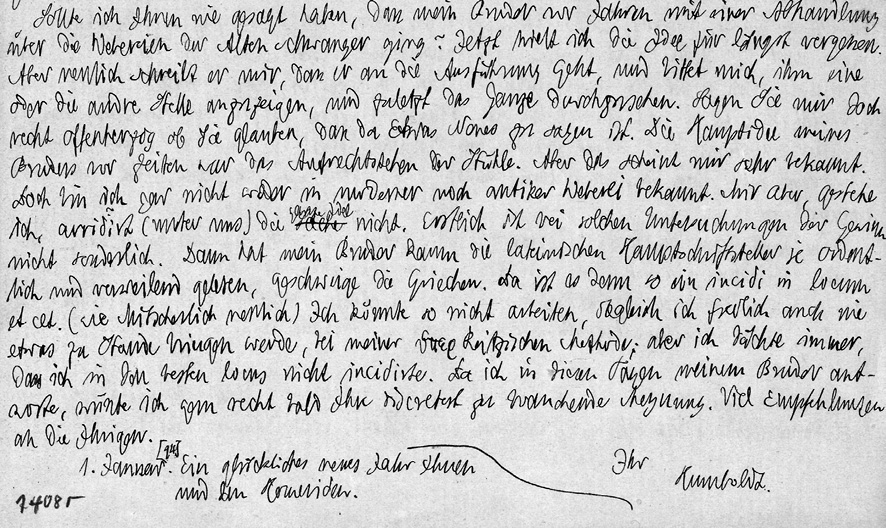 Sollte ich Ihnen nie gesagt haben, dass mein Bruder vor Jahren mit einer Abhandlung
über die Webereien der Alten schwanger ging? Jetzt hielt ich die Idee für längst vergessen.
Aber neulich schreibt er mir, dass er an die Ausführung geht, und bittet mich, ihm eine
oder die andre Stelle anzuzeigen, und zuletzt das Ganze durchzusehen. Sagen Sie mir doch
recht offenherzig ob Sie glauben, dass da Etwas Neues zu sagen ist. Die Hauptidee meines
Bruders vor Zeiten war das Aufrechtstehen der Stühle. Aber das scheint mir sehr bekannt.
Doch bin ich gar nicht weder in moderner noch antiker Weberei bekannt. Mir aber, gestehe
ich, arridirt (unter uns) die ganze Idee nicht. Erstlich ist bei solchen Untersuchungen der Gewinn
nicht sonderlich. Dann hat mein Bruder kaum die lateinischen Hauptschriftsteller je ordent-
lich und verweilend gelesen, geschweige die Griechen. Da ist es denn so ein incidi in locum
et cet. (wie Mitscherlich neulich) Ich könnte so nicht arbeiten, obgleich ich freilich auch nie
etwas zu Stande bringen werde, bei meiner Reitzischen Methode; aber ich dächte immer,
dass ich in den besten locus nicht incidirte. Da ich in diesen Tagen meinem Bruder ant-
worte, wüsste ich gern recht bald Ihre discretest zu brauchende Meynung. Viel Empfehlungen
an die Ihrigen.
1. Januar. [94] Ein glückliches neues Jahr Ihnen
und den Homeriden.
Ihr
Humboldt.
14085